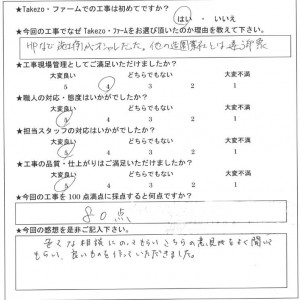 ★Takezo・ファームでの工事は初めてですか？
はい ・ いいえ
★今回の工事でなぜ Takezo・ファームをお選び頂いたのか理由を教えて下さい。
HPなど施工例がオシャレだった。他の造園業社とは違う印象
★工事現場管理としてご満足いただけましたか？
大変良い どちらでもない 大変不満
5 4 3 2 1
★職人の対応・態度はいかがでしたか？
大変良い どちらでもない 大変不満
5 4 3 2 1
★担当スタッフの対応はいかがでしたか？
大変良い どちらでもない 大変不満
5 4 3 2 1
★工事の品質・仕上がりはご満足いただけましたか？
大変良い どちらでもない 大変不満
5 4 3 2 1
★今回の工事を 100 点満点に採点すると何点ですか？
80点
★今回の感想を是非ご記入下さい。
色々な相談にのってもらい こちらの意見をよく聞いて
もらい、良いものを作っていただきました。